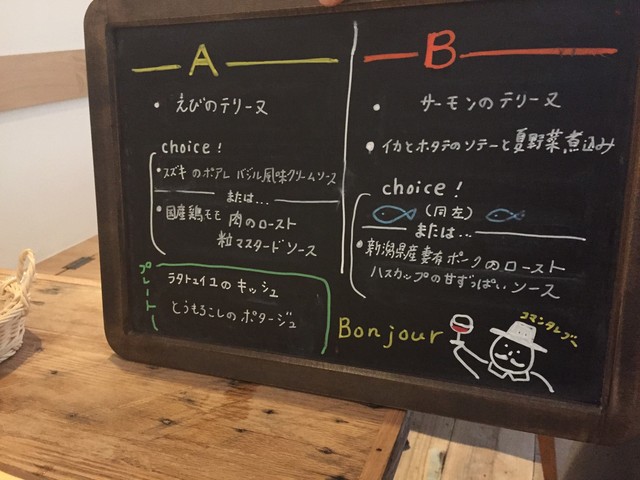 A
・えびのテリーヌ
choice!
・スズキのポアレ バジル風味クリームソース
または...
・国産鶏モモ肉のロースト
粒マスタードソース
プレート
ラタトゥイユのキッシュ
とうもろこしのポタージュ
B
・サーモンのテリーヌ
・イカとホタテのソテーと夏野菜煮込み
choice!
(同左)
または...
・新潟県産妻有ポークのロースト
ハスカップの甘ずっぱいソース
Bonjour
コマンタレブー